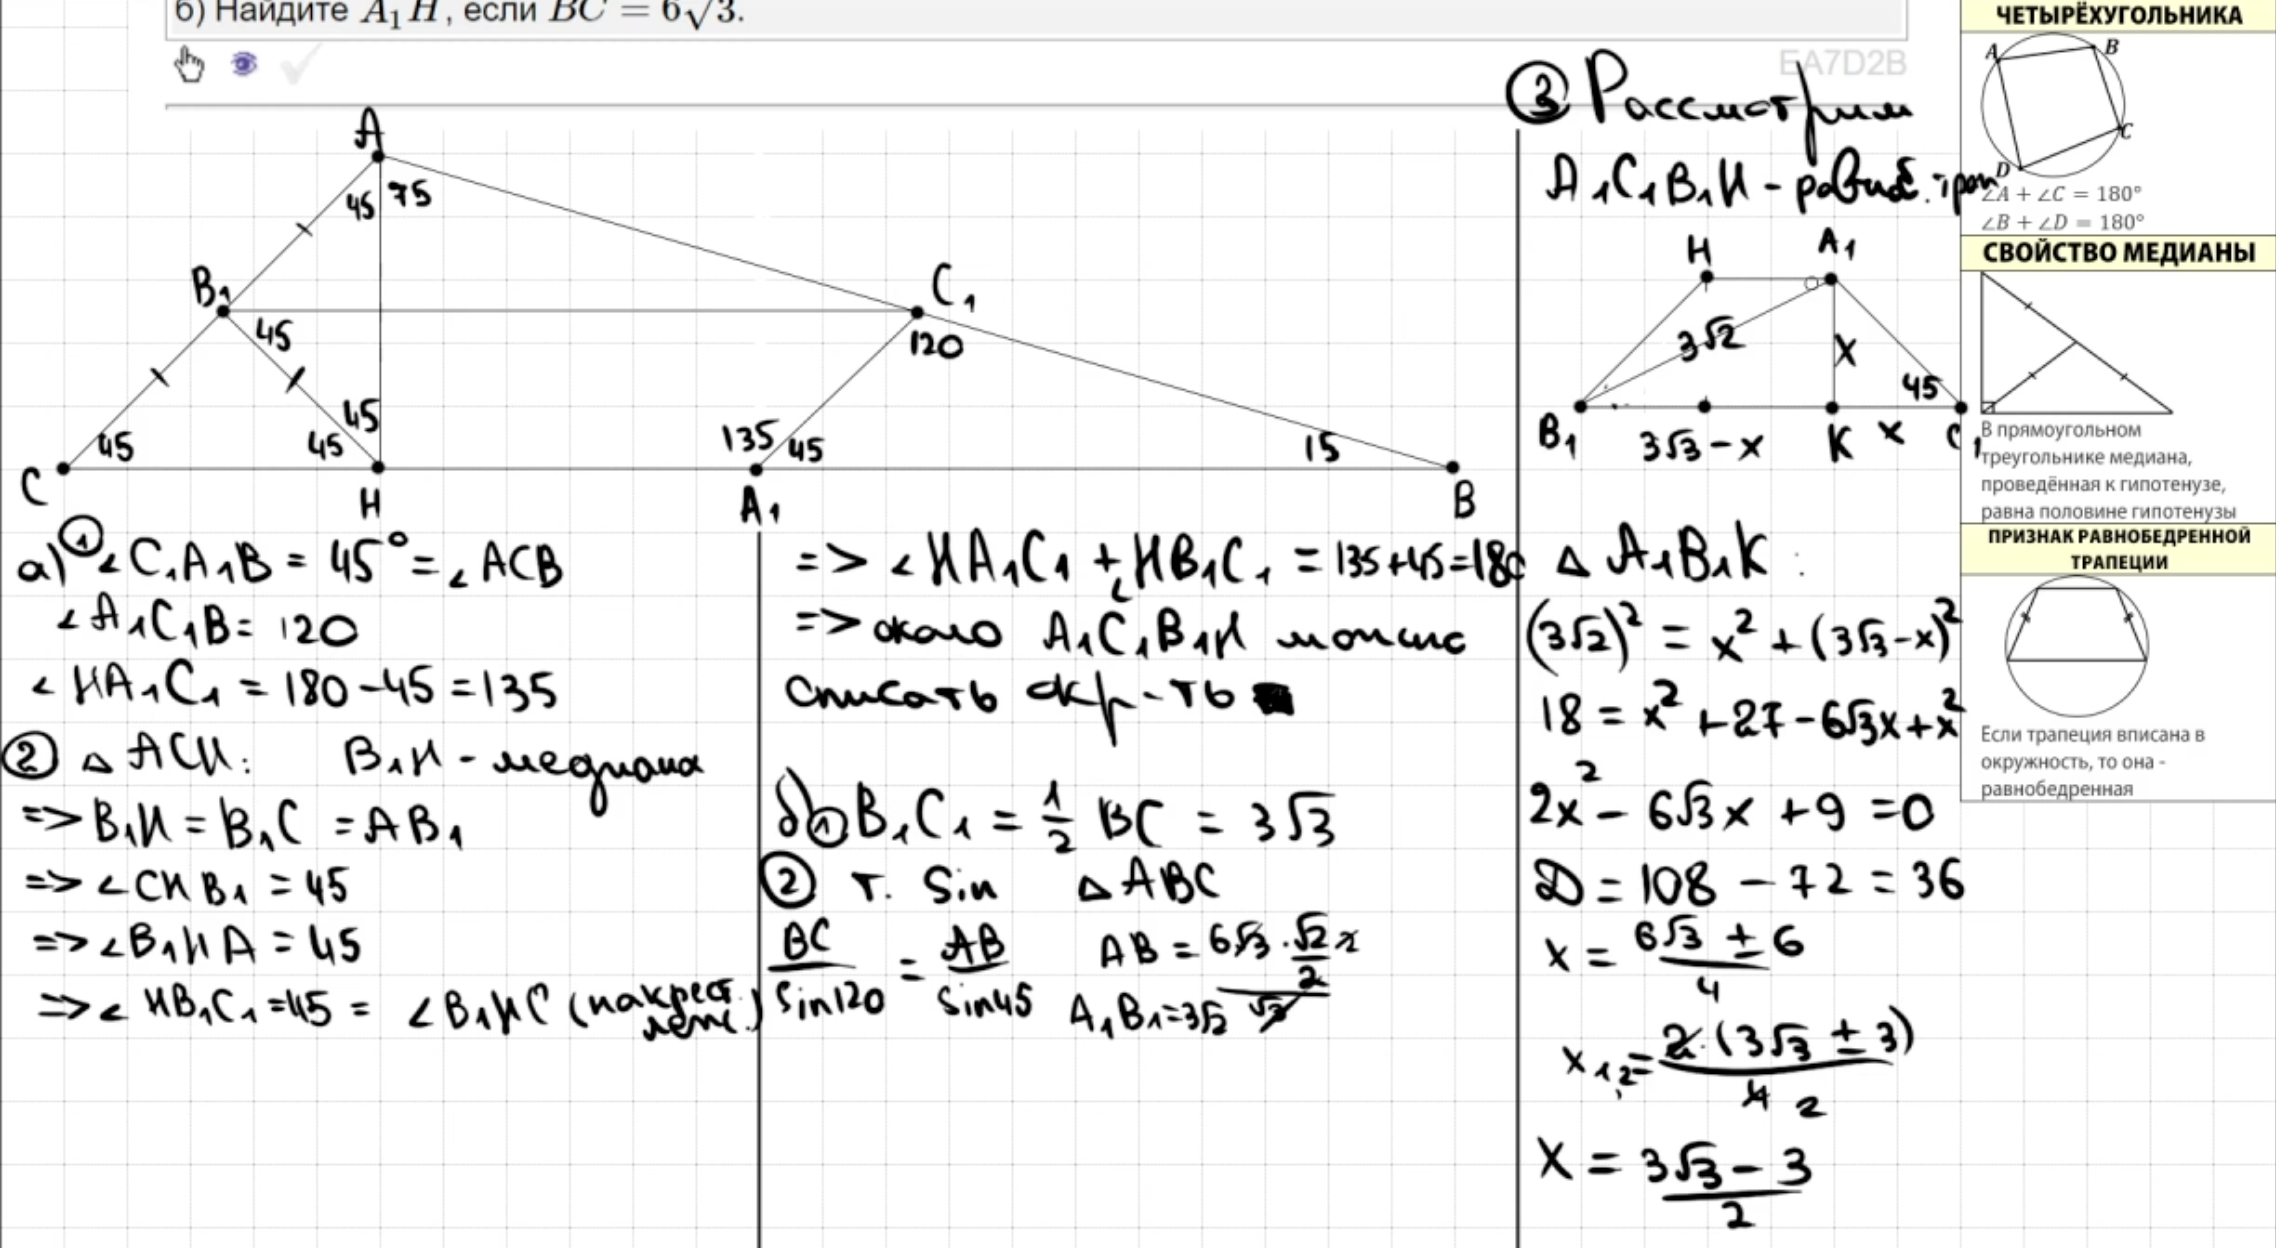 б) Найдите A₁H, если BC = 6√3.
EA7D2B
A
45 75
B₁
C₁
45
120
45
45
45
135 45
15
C
H
A₁
B
а) ① ∠C₁A₁B = 45° = ∠ACB
∠A₁C₁B = 120
∠HA₁C₁ = 180 - 45 = 135
② △ ACH: B₁H - медиана
=> B₁H = B₁C = AB₁
=> ∠CHB₁ = 45
=> ∠B₁HA = 45
=> ∠HB₁C₁ = 45 = ∠B₁HC (накрест леж.)
=> ∠HA₁C₁ + ∠HB₁C₁ = 135+45=180
=> около A₁C₁B₁H можно
описать окр-ть
б) ① B₁C₁ = 1/2 BC = 3√3
② т. Sin △ABC
BC/Sin120 = AB/Sin45 AB = 6√3 · √2/2 · 2/√3
A₁B₁=3√2
③ Рассмотрим
A₁C₁B₁H - равноб. трап
H A₁
3√2 x
45
B₁ 3√3 - x K x C₁
△ A₁B₁K:
(3√2)² = x² + (3√3-x)²
18 = x² + 27 - 6√3x + x²
2x² - 6√3x + 9 = 0
D = 108 - 72 = 36
x = (6√3 ± 6)/4
x₁,₂ = 2·(3√3 ± 3)/4 2
x = (3√3 - 3)/2
ЧЕТЫРЁХУГОЛЬНИКА
A
B
C
D
∠A + ∠C = 180°
∠B + ∠D = 180°
СВОЙСТВО МЕДИАНЫ
В прямоугольном
треугольнике медиана,
проведённая к гипотенузе,
равна половине гипотенузы
ПРИЗНАК РАВНОБЕДРЕННОЙ
ТРАПЕЦИИ
Если трапеция вписана в
окружность, то она -
равнобедренная